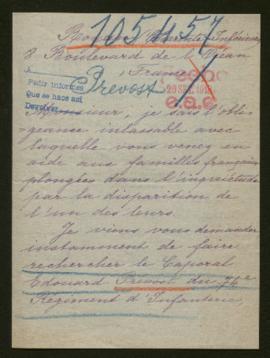 105457
8 Boulevard de l'Océan
France
Pedir informes
Que se hace así
Prevost
20 SEP. 191
Monsieur, je sais l'obli-
geance inlassable avec
laquelle vous venez en
aide aux familles françaises
plongées dans l'inquiétude
par la disparition de
l'un des leurs.
Je viens vous demander
instamment de faire
rechercher le Caporal
Edouard Prevost du
Regiment d'Infanterie